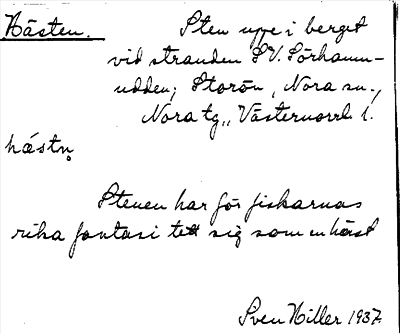 Hästen. Sten uppe i berget
vid stranden S.V. Sörhamn-
udden; Storön, Nora sn.,
Nora tg., Västernorrl. l.
hástņ
Stenen har för fiskarnas
rika fantasi tett sig som en häst
Sven Hiller 1937.